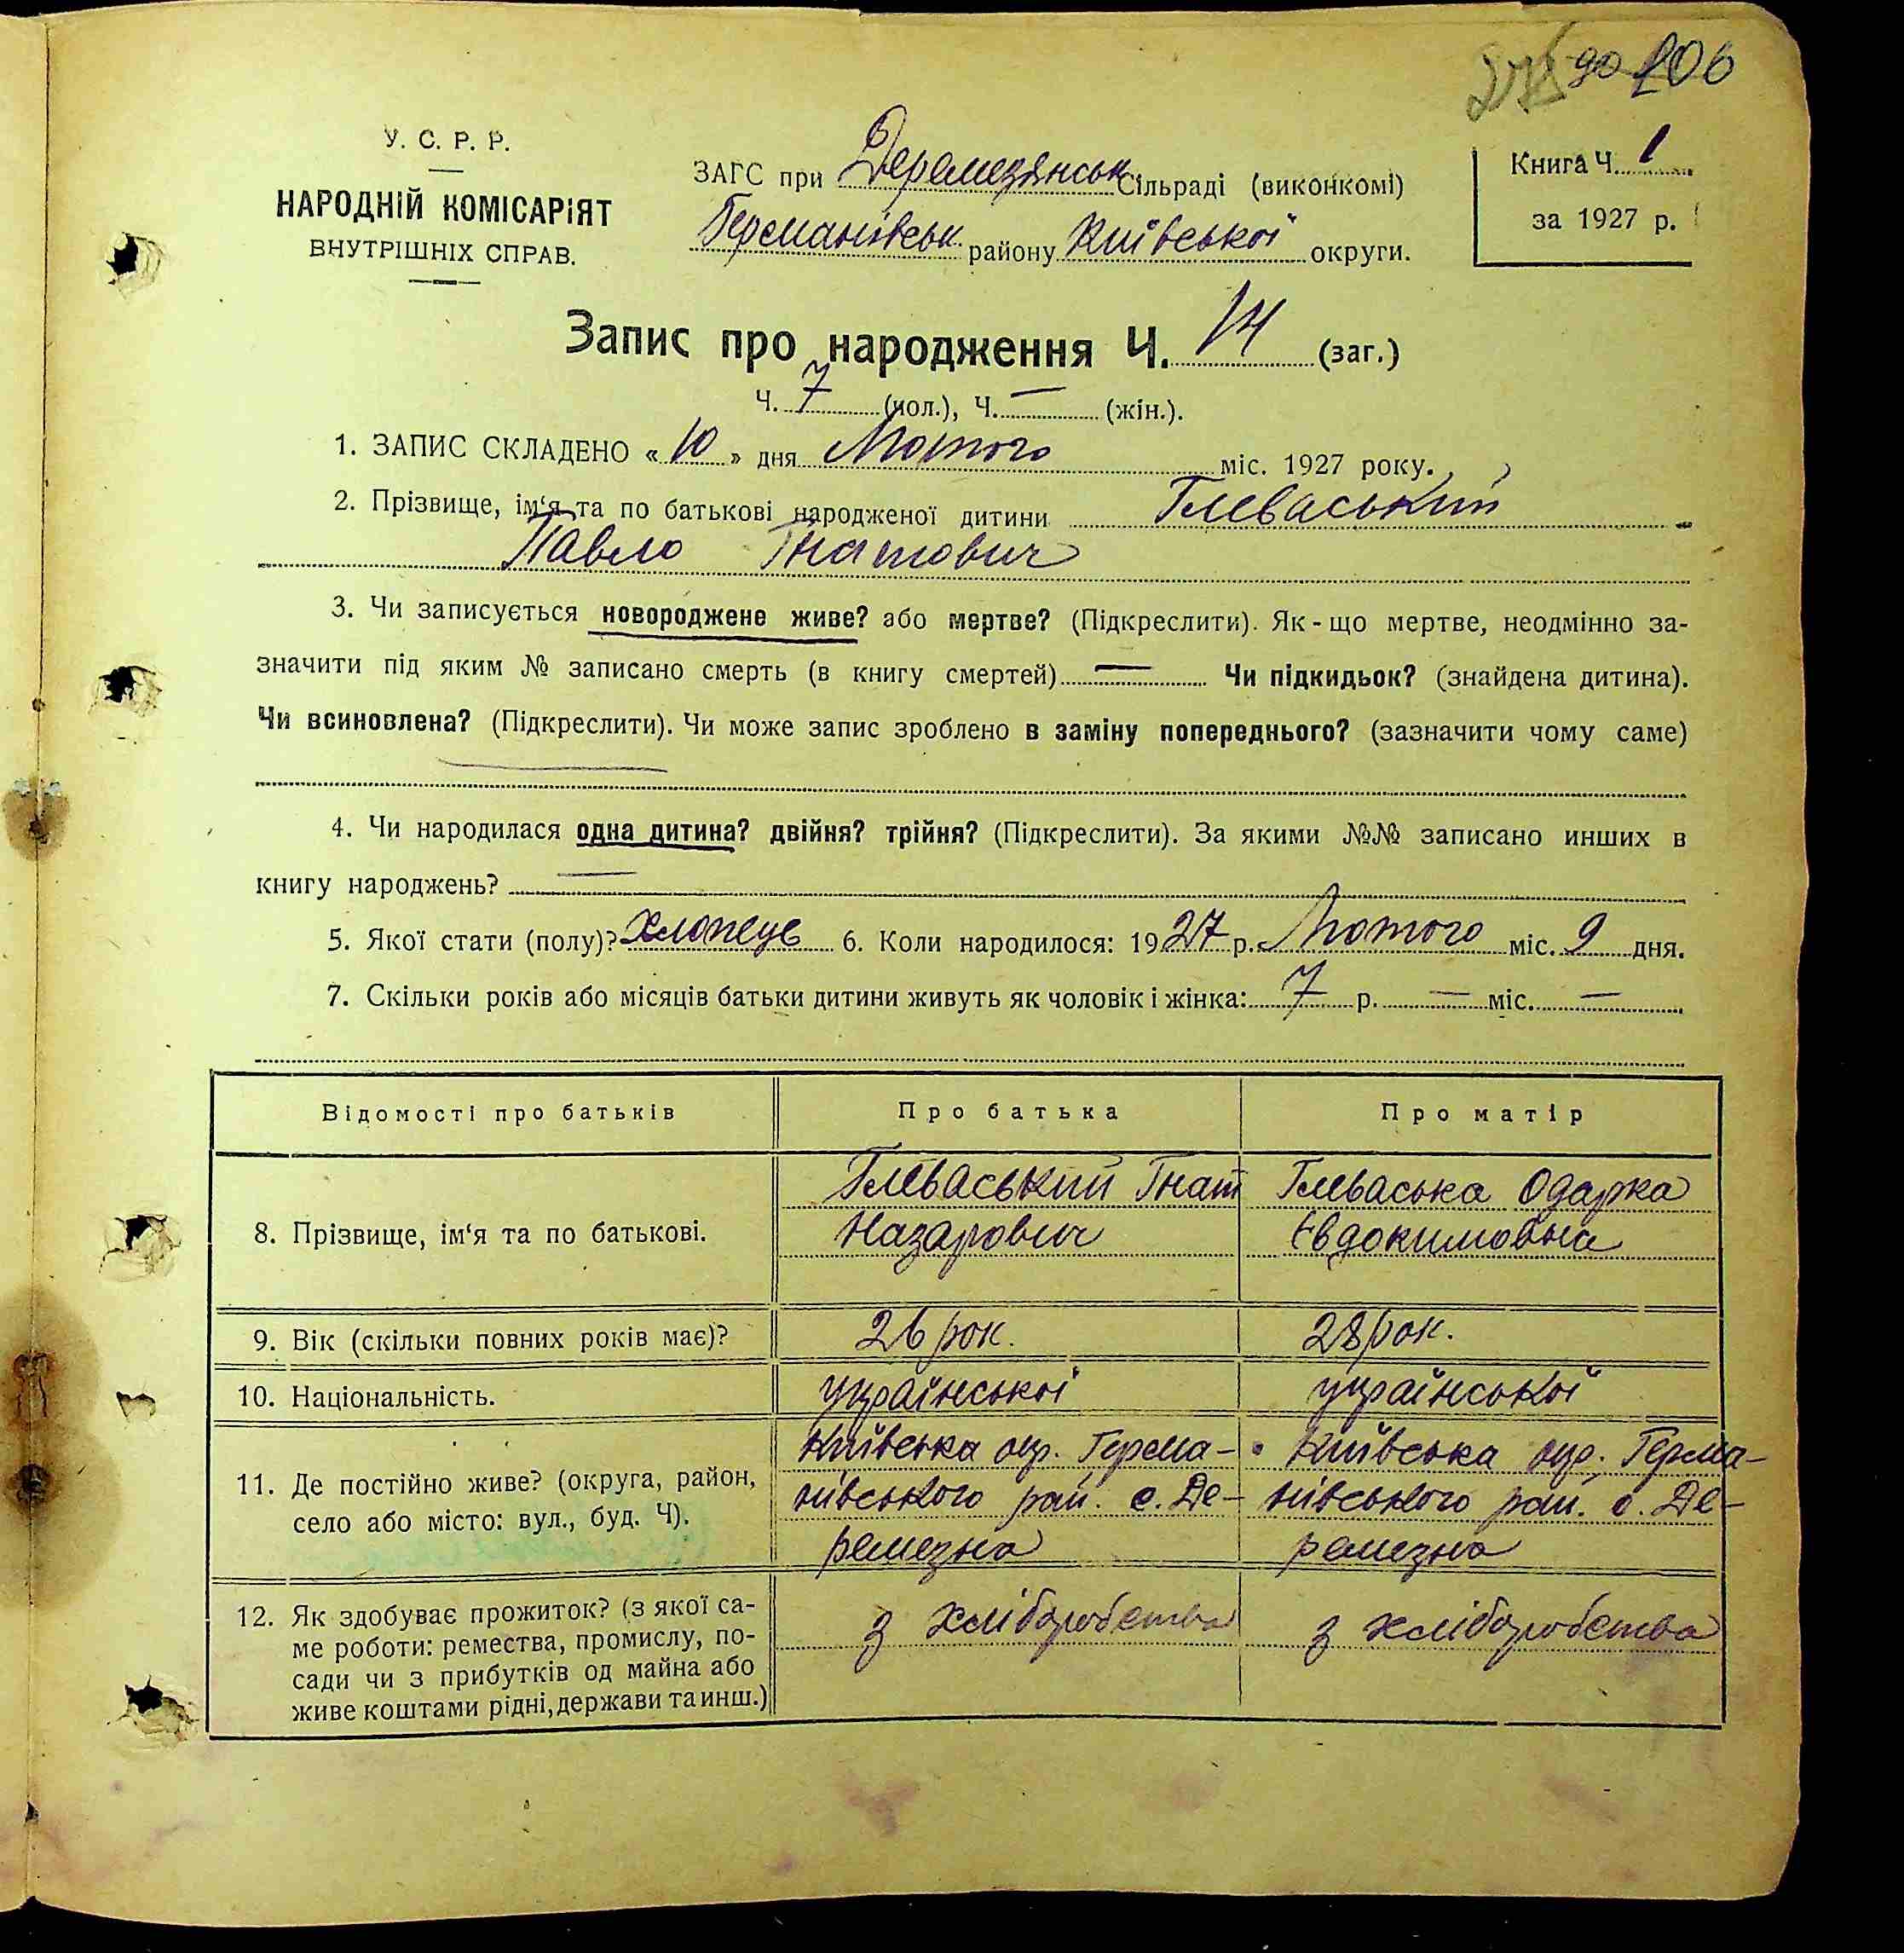 до 106
У. С. Р. Р.
НАРОДНІЙ КОМІСАРІЯТ
ВНУТРІШНІХ СПРАВ.
ЗАГС при Деремезянськ Сільраді (виконкомі)
Германівськ. району Київської округи.
Книга Ч. 1
за 1927 р.
Запис про народження Ч. 14 (заг.)
Ч. 7 (чол.), Ч. — (жін.).
1. ЗАПИС СКЛАДЕНО « 10 » дня Лютого міс. 1927 року.
2. Прізвище, ім‘я та по батькові народженої дитини Глеваський
Павло Гнатович
3. Чи записується новороджене живе? або мертве? (Підкреслити). Як-що мертве, неодмінно за-
значити під яким № записано смерть (в книгу смертей) — Чи підкидьок? (знайдена дитина).
Чи всиновлена? (Підкреслити). Чи може запис зроблено в заміну попереднього? (зазначити чому саме)
—
4. Чи народилася одна дитина? двійня? трійня? (Підкреслити). За якими №№ записано инших в
книгу народжень? —
5. Якої стати (полу)? хлопець 6. Коли народилося: 1927 р. Лютого міс. 9 дня.
7. Скільки років або місяців батьки дитини живуть як чоловік і жінка: 7 р. — міс. —
Відомості про батьків Про батька Про матір
8. Прізвище, ім‘я та по батькові.
Глеваський Гнат
Назарович
Глеваська Одарка
Євдокимовна
9. Вік (скільки повних років має)? 26 рок. 28 рок.
10. Національність. української української
11. Де постійно живе? (округа, район,
село або місто: вул., буд. Ч).
Київська окр. Герма-
нівського рай. с. Де-
ремезна
Київська окр. Герма-
нівського рай. с. Де-
ремезна
12. Як здобуває прожиток? (з якої са-
ме роботи: ремества, промислу, по-
сади чи з прибутків од майна або
живе коштами рідні, держави та инш.)
з хліборобства
з хліборобства